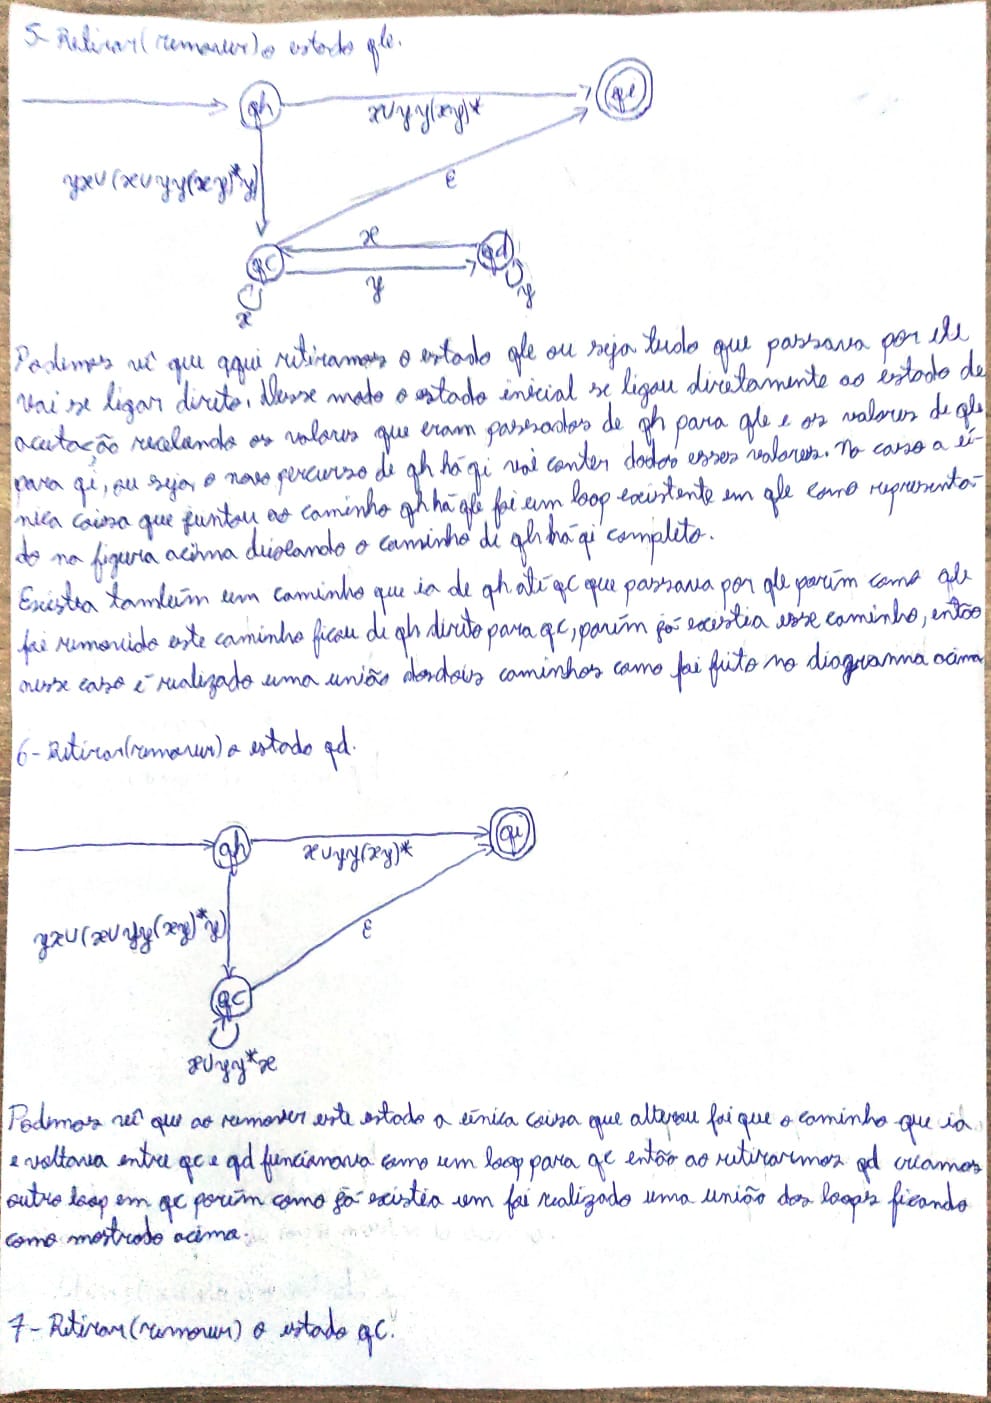 5- Retirar(remover) o estado qle.
qh
qi
x∪yy(xy)*
yx∪(x∪yy(xy)*y)
ε
x
qc
qd
y
x
y
Podemos vê que qqui retiramos o estado qle ou seja tudo que passava por ele
vai se ligar direto. Nesse modo o estado inicial se ligou diretamente ao estado de
aceitação recebendo os valores que eram passados de qh para qle e os valores de qle
para qi, ou seja, o novo percurso de qh há qi vai conter dodos esses valores. No caso a ú-
nica coisa que juntou ao caminho qh há qle foi um loop existente em qle como representa-
do na figura acima deixando o caminho de qh há qi completo.
Existia também um caminho que ia de qh até qc que passava por qle porém como qle
foi removido este caminho ficou de qh direto para qc, porém já existia esse caminho, então
nesse caso é realizado uma união dos dois caminhos como foi feito no diagrama acima
6- Retirar(remover) o estado qd.
qh
qi
x∪yy(xy)*
yx∪(x∪yy(xy)*y)
ε
qc
x∪yy*x
Podemos vê que ao remover este estado a única coisa que alterou foi que o caminho que ia
e voltava entre qc e qd funcionava como um loop para qc então ao retirarmos qd criamos
outro loop em qc porém como já existia um foi realizado uma união dos loops ficando
como mostrado acima.
7- Retirar(remover) o estado qc.